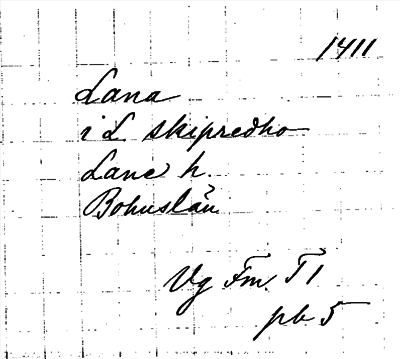 1411
Lana
i L. skipredho
Lane h.
Bohuslän
Vg Fm. T1
pb 5